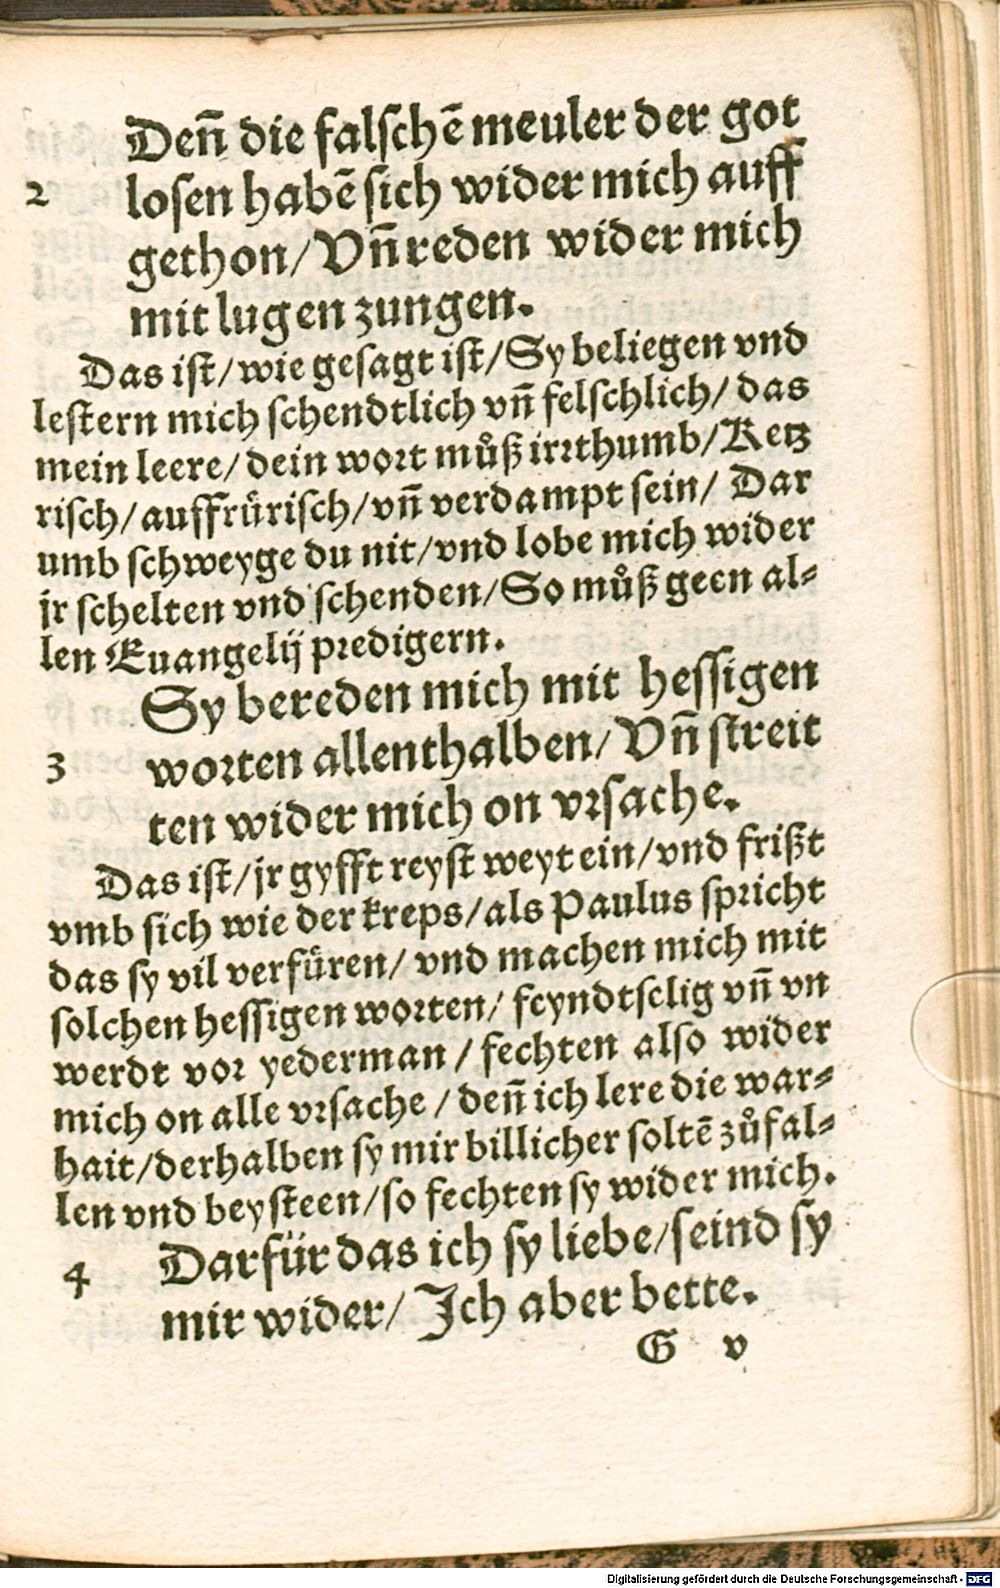 Deñ die falschē meuler der got
2 losen habē sich wider mich auff
gethon/ Vñ reden wider mich
mit lugen zungen.
Das ist/ wie gesagt ist/ Sy beliegen vnd
lestern mich schendtlich vñ felschlich/ das
mein leere/ dein wort můß irrthumb/ Ketz
risch/ auffrürisch/ vñ verdampt sein/ Dar
umb schweyge du nit/ vnd lobe mich wider
jr schelten vnd schenden/ So můß geen al⸗
len Euangelij predigern.
Sy bereden mich mit hessigen
3 worten allenthalben/ Vñ streit
ten wider mich on vrsache.
Das ist/ jr gyfft reyst weyt ein/ vnd frißt
vmb sich wie der kreps/ als Paulus spricht
das sy vil verfüren/ vnd machen mich mit
solchen hessigen worten/ feyndtselig vñ vn
werdt vor yederman/ fechten also wider
mich on alle vrsache/ deñ ich lere die war⸗
hait/ derhalben sy mir billicher soltē zůfal⸗
len vnd beysteen/ so fechten sy wider mich.
4 Darfür das ich sy liebe/ seind sy
mir wider/ Ich aber bette.
G v
Digitalisierung gefördert durch die Deutsche Forschungsgemeinschaft - DFG